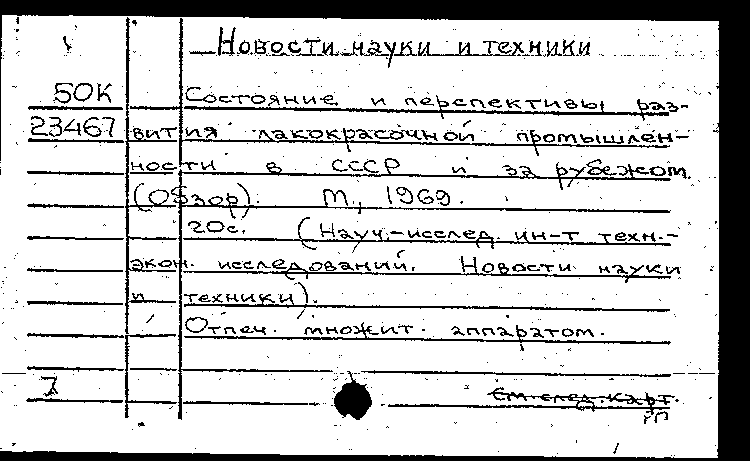 Новости науки и техники
50К Состояние и перспективы раз-
23467 вития лакокрасочной промышлен-
ности в СССР и за рубежом
(Обзор). М., 1969.
20с. (Науч.-исслед. ин-т техн.-
экон. исследований. Новости науки
и техники).
Отпеч. множит. аппаратом.
7 См. след. карт.